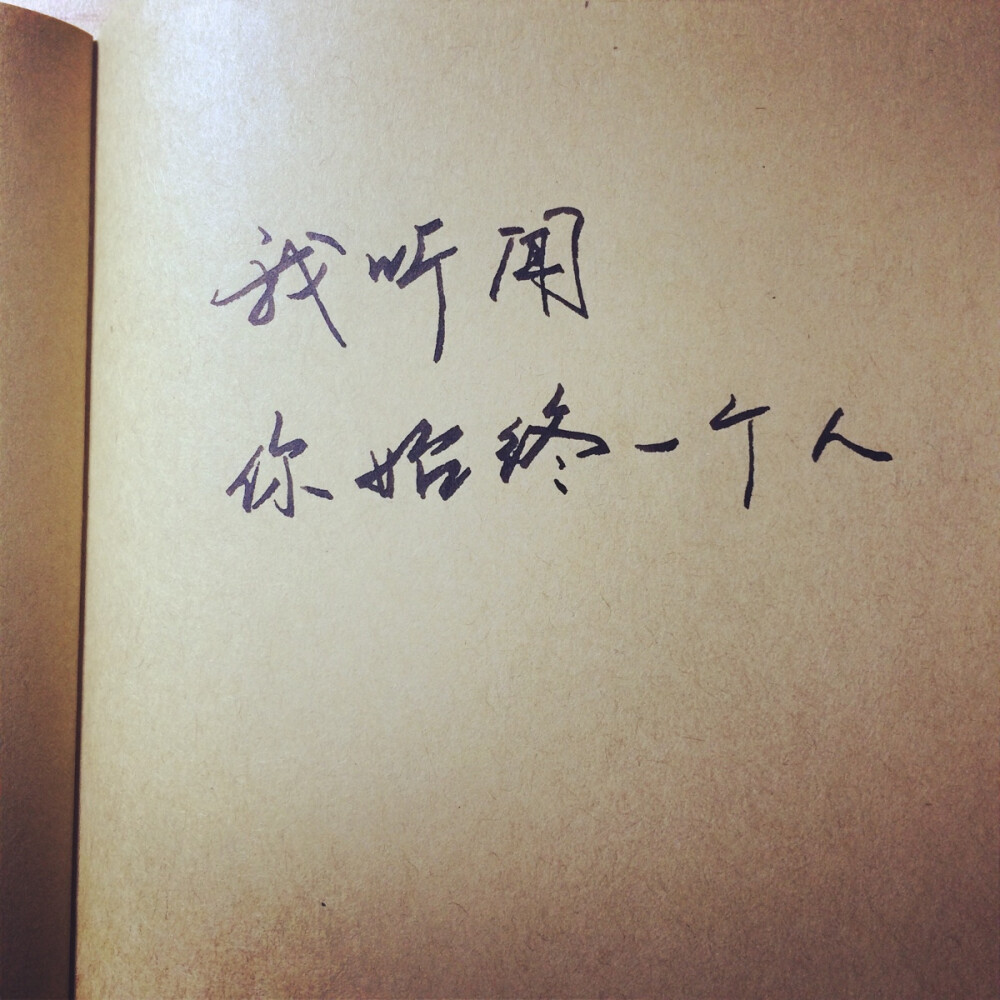 我听闻
你始终一个人